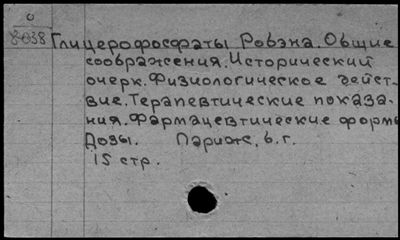 0
8038
Глицерофосфаты Робэна. Общие
соображения. Исторический
очерк. Физиологическое дейст-
вие. Терапевтические показа-
ния. Фармацевтические формы
Дозы. Париж, б. г.
15 стр.